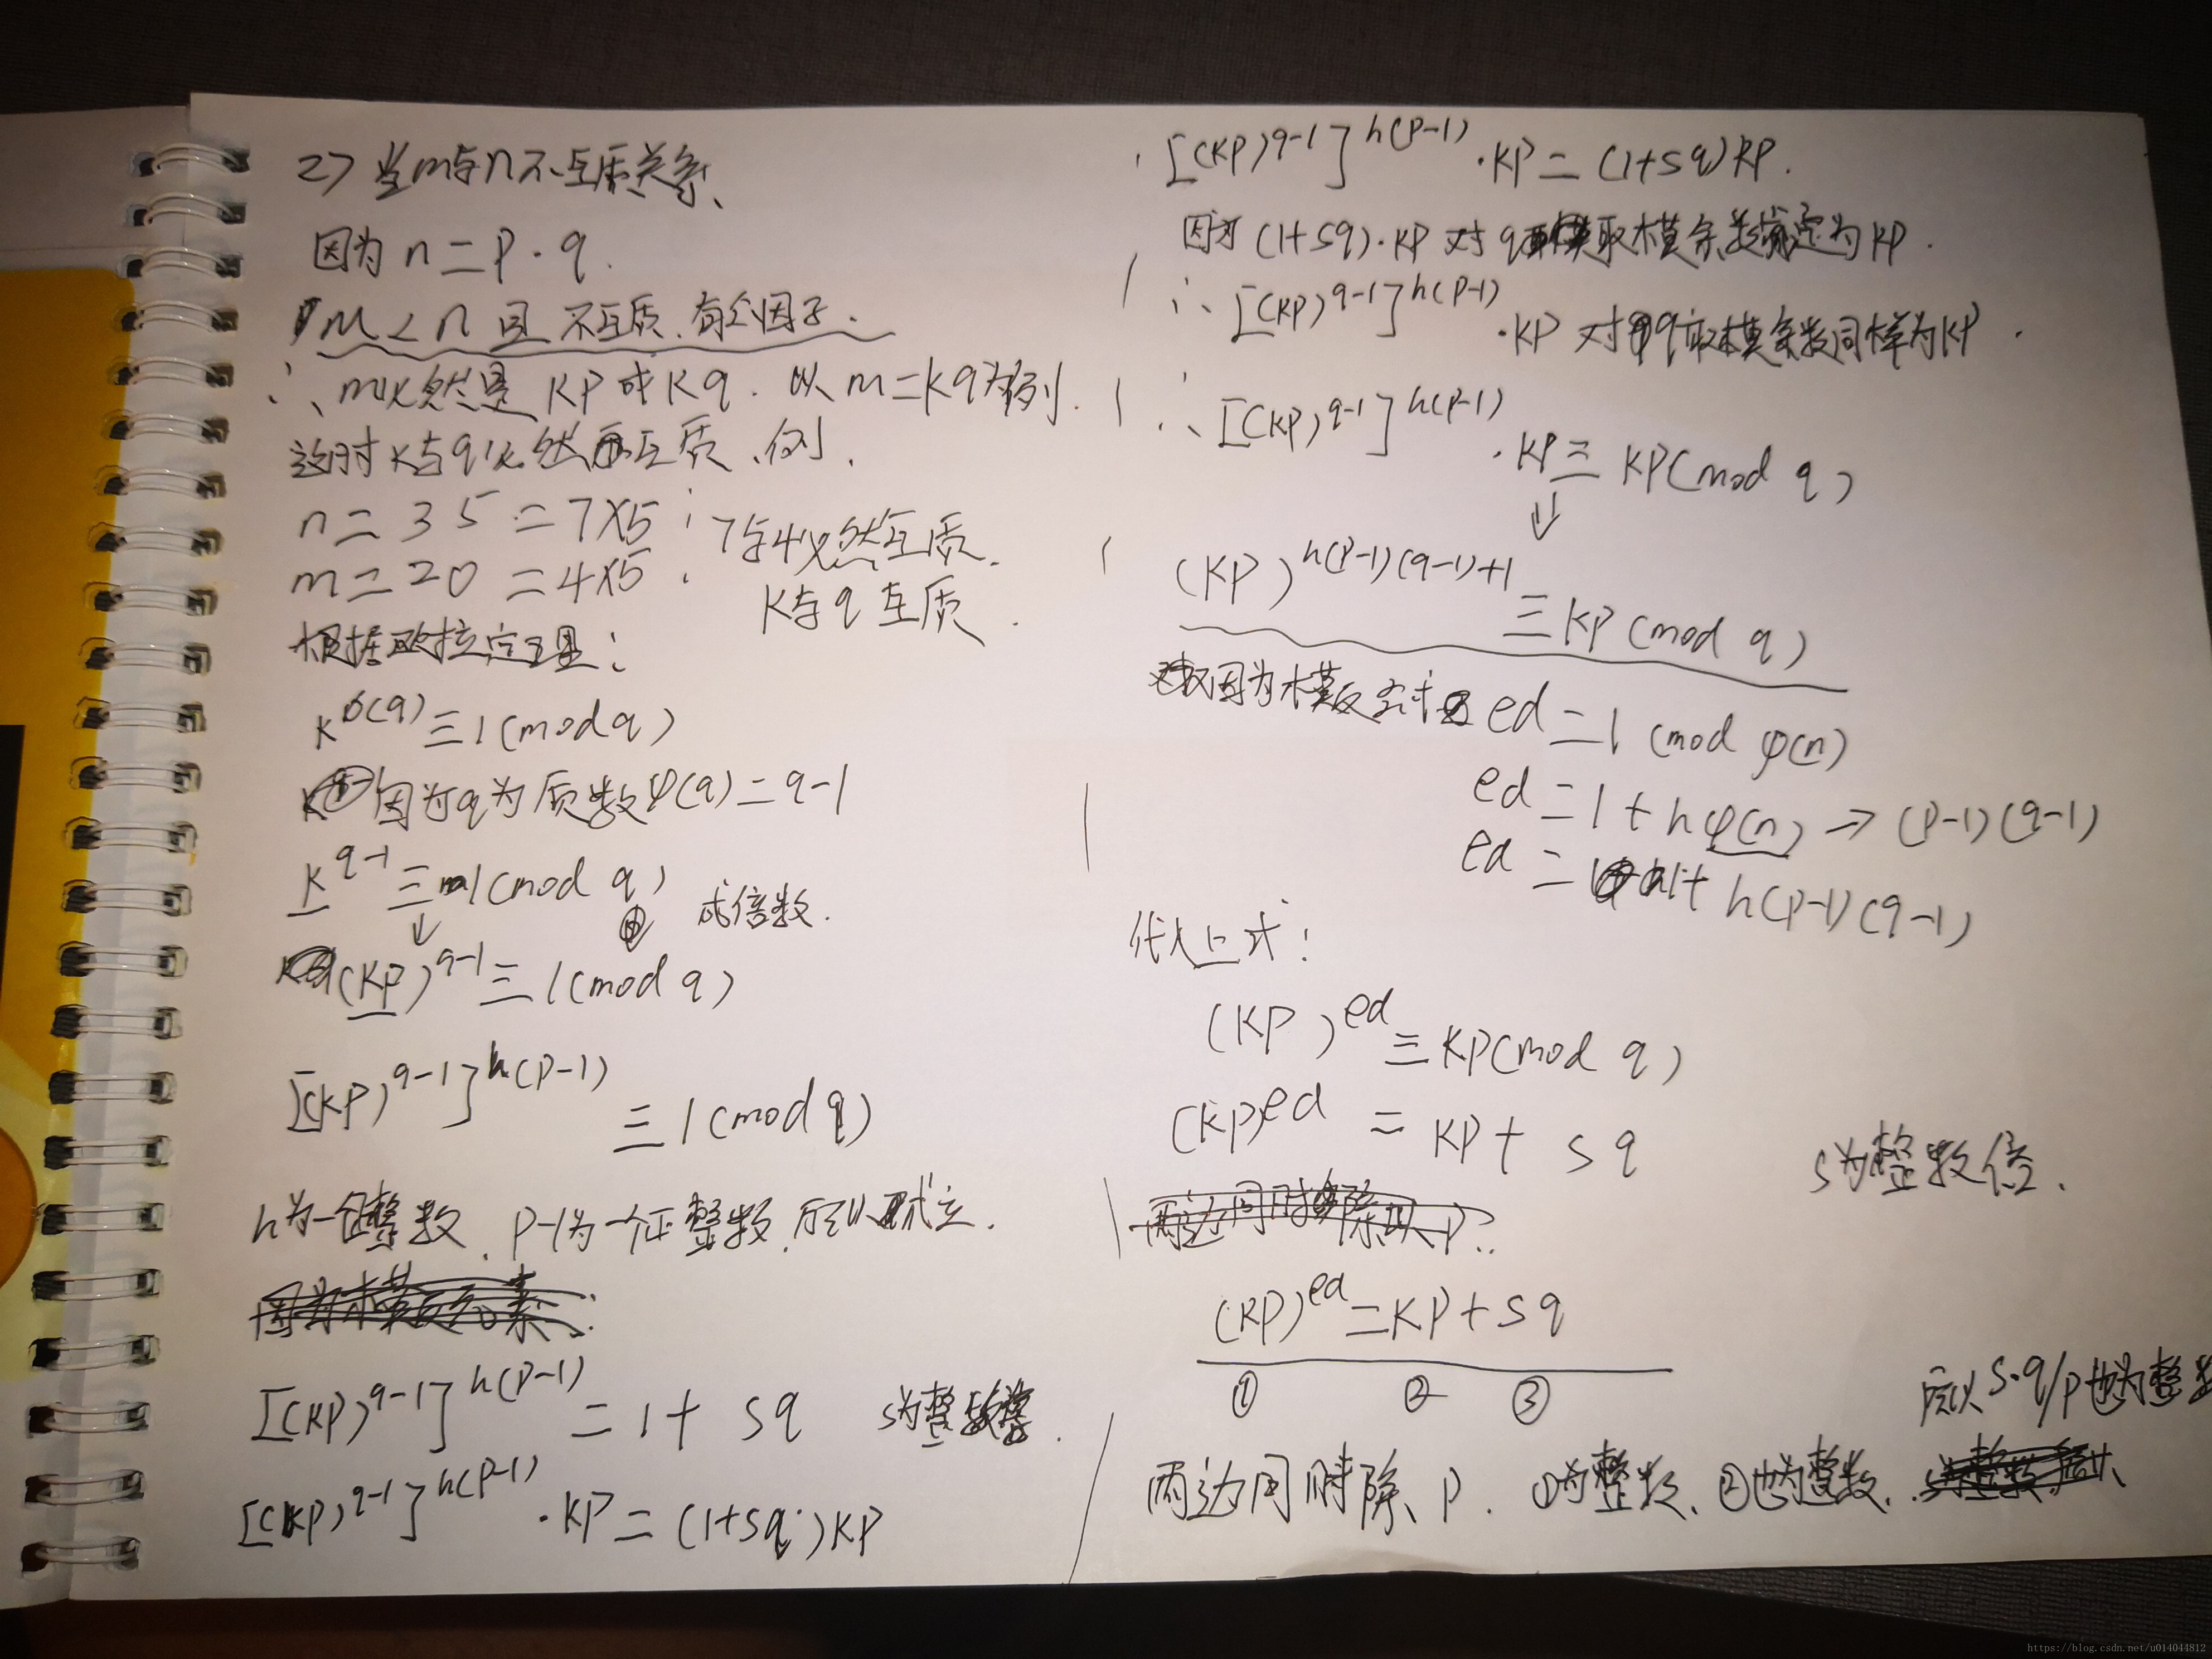 2> 当m与n不互质关系、
因为 n = p · q.
m < n 且 不互质、有公因子.
∴ m必然是 KP 或 Kq. 以 m = kq 为例.
这时 K与q必然互质、例.
n = 35 = 7×5 ; 7与4必然互质.
m = 20 = 4×5 . K与q 互质.
根据欧拉定理:
K^φ(q) ≡ 1 (mod q)
因为q为质数 φ(q) = q-1
K^q-1 ≡ 1 (mod q) 成倍数.
↓
(KP)^q-1 ≡ 1 (mod q)
[(KP)^q-1]^h(P-1) ≡ 1 (mod q)
h为一个整数、P-1为一个正整数、所以成立.
因为模反元素:
[(KP)^q-1]^h(P-1) = 1 + sq s为整数
[(KP)^q-1]^h(P-1) · KP = (1+sq)KP
[(KP)^q-1]^h(P-1) · KP = (1+sq)KP.
因为 (1+sq)·KP 对q取模余数肯定为KP.
∴ [(KP)^q-1]^h(P-1) · KP 对q取模余数同样为KP.
∴ [(KP)^q-1]^h(P-1) · KP ≡ KP (mod q)
↓
(KP)^h(P-1)(q-1)+1 ≡ KP (mod q)
因为模反 ed = 1 (mod φ(n)
ed = 1 + hφ(n) → (P-1)(q-1)
ed = 1+ h(P-1)(q-1)
代入上式:
(KP)^ed ≡ KP (mod q)
(KP)^ed = KP + sq s为整数倍.
两边同时除以P:
(KP)^ed = KP + sq
① ② ③
所以 s·q/p 也为整数
两边同时除、P. ①为整数、②也为整数、
https://blog.csdn.net/u014044812